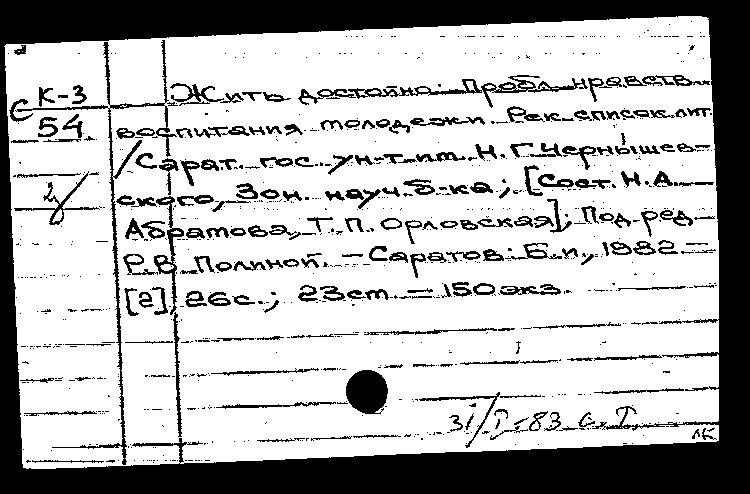 К-3
С
54.
2/
Жить достойно: Пробл. нравств.
воспитания молодежи. Рек. список лит.
/Сарат. гос. ун-т им. Н.Г.Чернышев-
ского, Зон. науч. б-ка; [Сост. Н.А.
Абратова, Т.П.Орловская]; Под ред.
Р.В.Полиной. — Саратов: Б.и., 1982. —
[2], 26с.; 23см. — 150экз.
31/I-83 С.Т.
ЛК